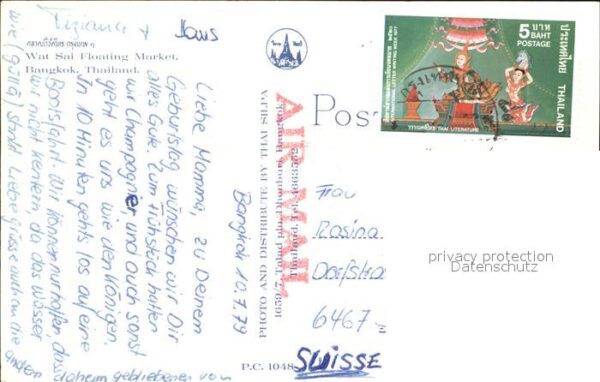 ตลาดน้ำวัดไทร กรุงเทพ ฯ
Wat Sai Floating Market,
Bangkok, Thailand.
Bangkok 10.7.79
Liebe Mamma, zu Deinem
Geburtstag wünschen wir Dir
alles Gute. Zum Frühstück hatten
wir Champagner und auch sonst
geht es uns wie den Königen.
In 10 Minuten gehts los auf eine
Bootsfahrt. Wir können nur hoffen, dass
wir nicht kentern da das Wasser
(gültig) sind. Liebe Grüsse auch an die
andern daheim gebliebenen von
Tiziana +
Hans
PHOTO AND DISTRIBUTE BY THAI SILPA
Thailand. Tel.
P.C. 1048
AIR MAIL
Post
5 บาท
BAHT
POSTAGE
ประเทศไทย
THAILAND
INTERNATIONAL LETTER WRITING WEEK 1977
วรรณคดีไทย THAI LITERATURE
Frau
Rosina
Dorfstra
6467
SUISSE
privacy protection
Datenschutz